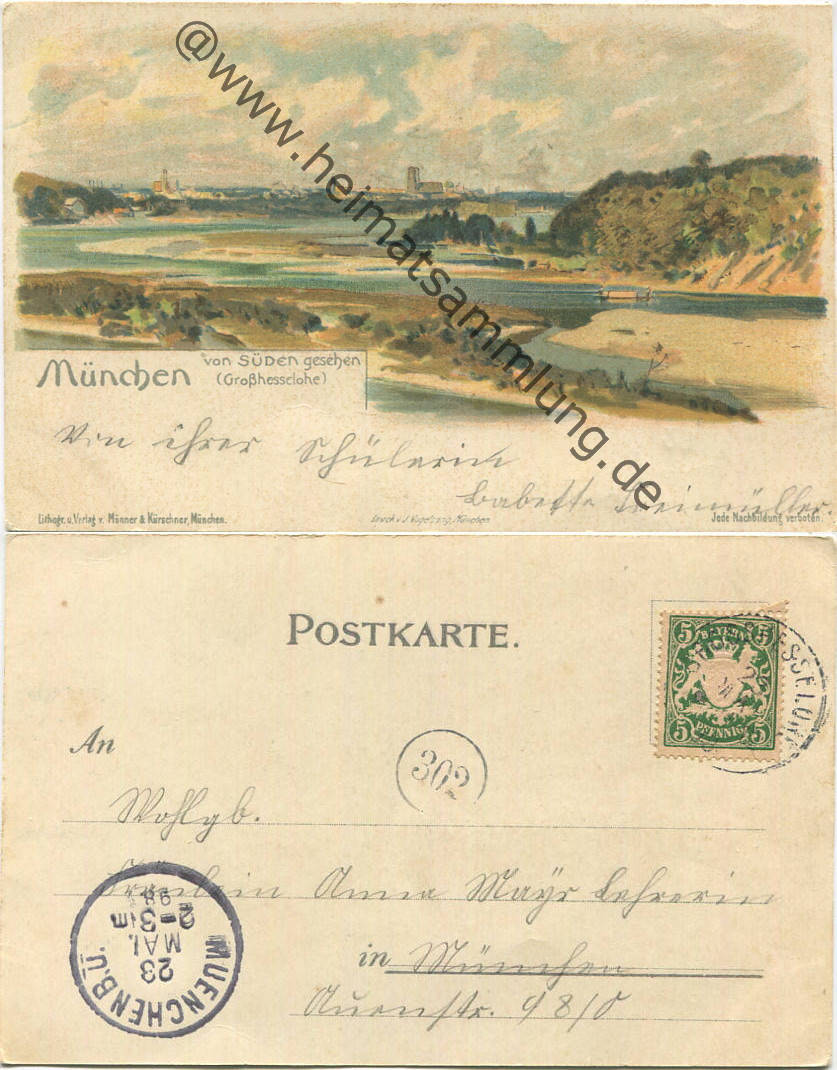 @www.heimatsammlung.de
München von SÜDEN gesehen
(Großhesselohe)
Von ihrer Schülerin
Babette
Lithogr. u. Verlag v. Männer & Kürschner, München. Jede Nachbildung verboten.
POSTKARTE.
BAYERN
5 5
5 PFENNIG 5
An
302
Wohlgb.
Fräulein Anna Mayr Lehrerin
in München
Auenstr.
MUENCHEN B.U.
23
MAI.
2-3 Nm
98